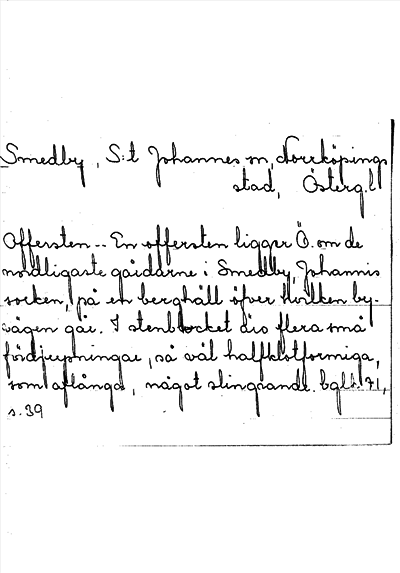 Smedby, S:t Johannes sn, Norrköpings
stad, Österg.l.
Offersten -- En offersten ligger Ö. om de
nordligaste gårdarne i Smedby, Johannis
socken, på en berghäll öfver hvilken by-
vägen går. I stenblocket äro flera små
fördjupningar, så väl halfklotformiga,
som aflånga, något slingrande. 71,
s. 39